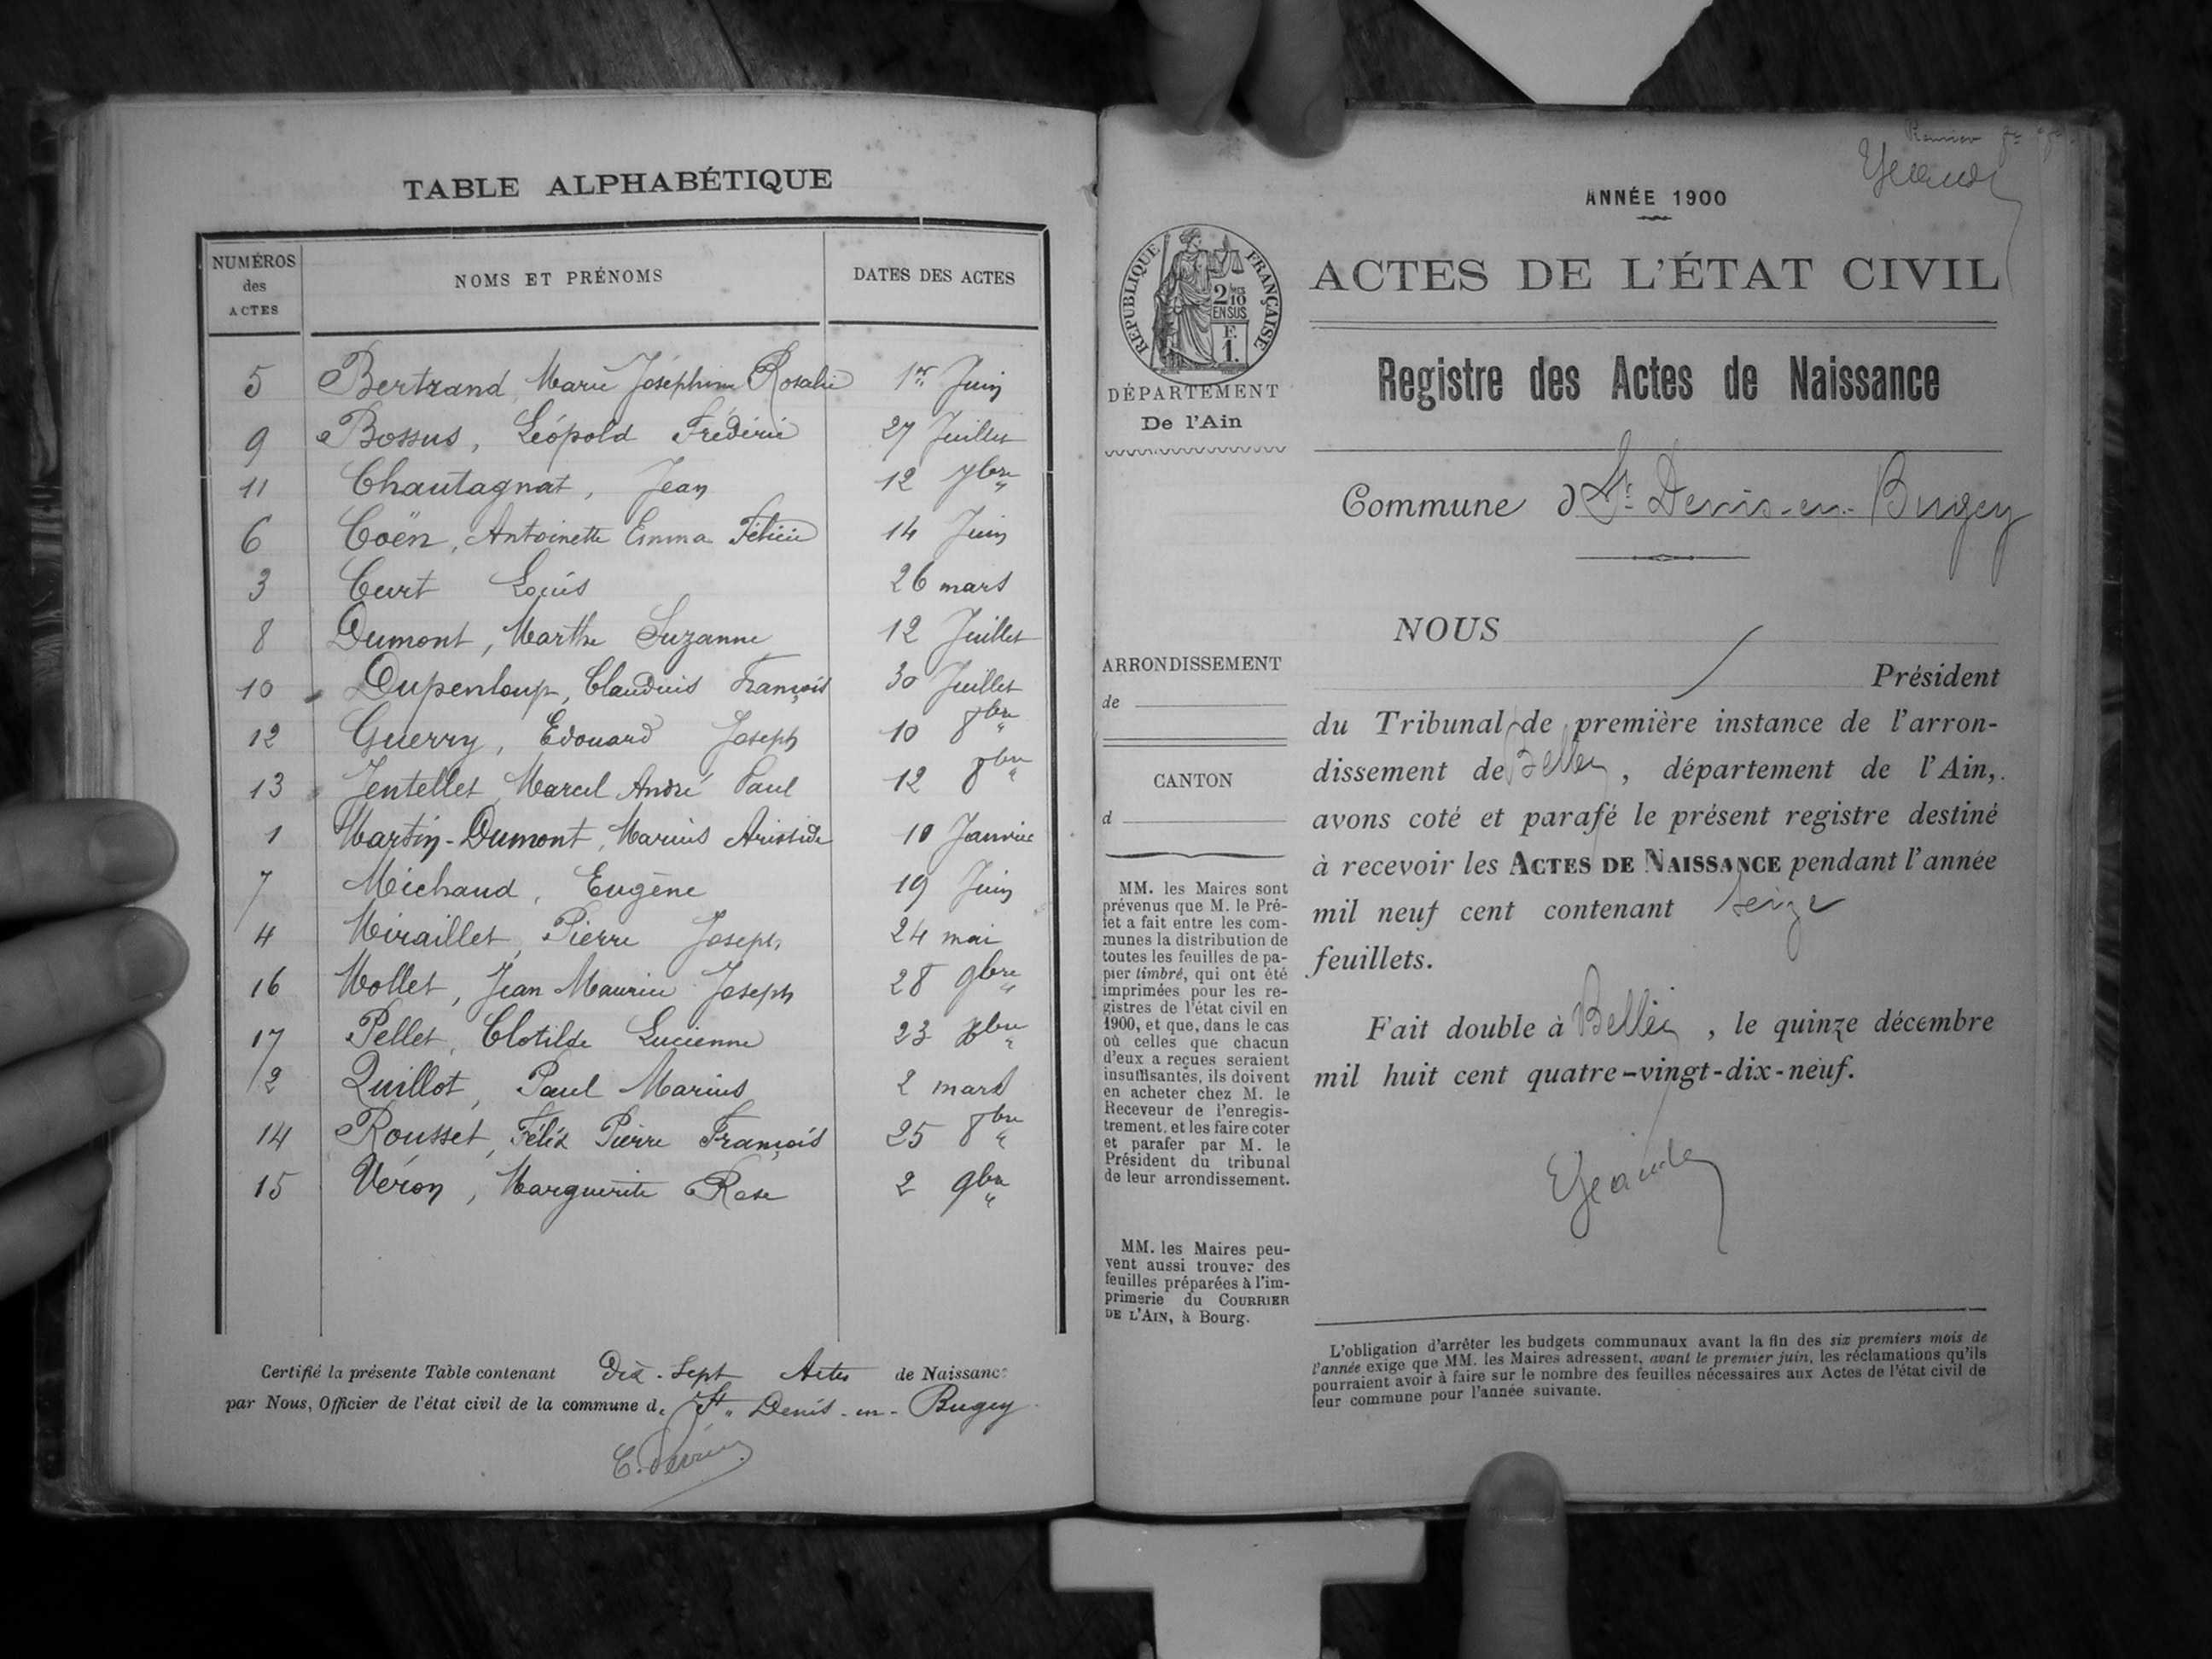 TABLE ALPHABÉTIQUE
NUMÉROS des ACTES NOMS ET PRÉNOMS DATES DES ACTES
5 Bertrand, Marie Joséphine Rosalie 1er Juin
9 Bossus, Léopold Frédéric 27 Juillet
11 Chautagnat, Jean 12 7bre
6 Coën, Antoinette Emma Félicie 14 Juin
3 Curt Louis 26 mars
8 Dumont, Marthe Suzanne 12 Juillet
10 Dupenloup, Claudius François 30 Juillet
12 Guerry, Edouard Joseph 10 8bre
13 Jentellet, Marcel André Paul 12 8bre
1 Martin-Dumont, Marius Aristide 10 Janvier
7 Michaud, Eugène 19 Juin
4 Miraillet, Pierre Joseph 24 mai
16 Mollet, Jean Maurice Joseph 28 9bre
17 Pellet, Clotilde Lucienne 23 xbre
2 Quillot, Paul Marius 2 mars
14 Rousset, Félix Pierre François 25 8bre
15 Véron, Marguerite Rose 2 9bre
Certifié la présente Table contenant Dix-Sept Actes de Naissance
par Nous, Officier de l'état civil de la commune de St Denis-en-Bugey
ANNÉE 1900
RÉPUBLIQUE FRANÇAISE
2/10 EN SUS
F. 1.
ACTES DE L'ÉTAT CIVIL
DÉPARTEMENT
De l'Ain
Registre des Actes de Naissance
Commune d St Denis-en-Bugey
ARRONDISSEMENT
de
CANTON
d
MM. les Maires sont
prévenus que M. le Pré-
fet a fait entre les com-
munes la distribution de
toutes les feuilles de pa-
pier timbré, qui ont été
imprimées pour les re-
gistres de l'état civil en
1900, et que, dans le cas
où celles que chacun
d'eux a reçues seraient
insuffisantes, ils doivent
en acheter chez M. le
Receveur de l'enregis-
trement, et les faire coter
et parafer par M. le
Président du tribunal
de leur arrondissement.
MM. les Maires peu-
vent aussi trouver des
feuilles préparées à l'im-
primerie du COURRIER
DE L'AIN, à Bourg.
NOUS
Président
du Tribunal de première instance de l'arron-
dissement de Belley, département de l'Ain,
avons coté et parafé le présent registre destiné
à recevoir les ACTES DE NAISSANCE pendant l'année
mil neuf cent contenant seize
feuillets.
Fait double à Belley, le quinze décembre
mil huit cent quatre-vingt-dix-neuf.
L'obligation d'arrêter les budgets communaux avant la fin des six premiers mois de
l'année exige que MM. les Maires adressent, avant le premier juin, les réclamations qu'ils
pourraient avoir à faire sur le nombre des feuilles nécessaires aux Actes de l'état civil de
leur commune pour l'année suivante.